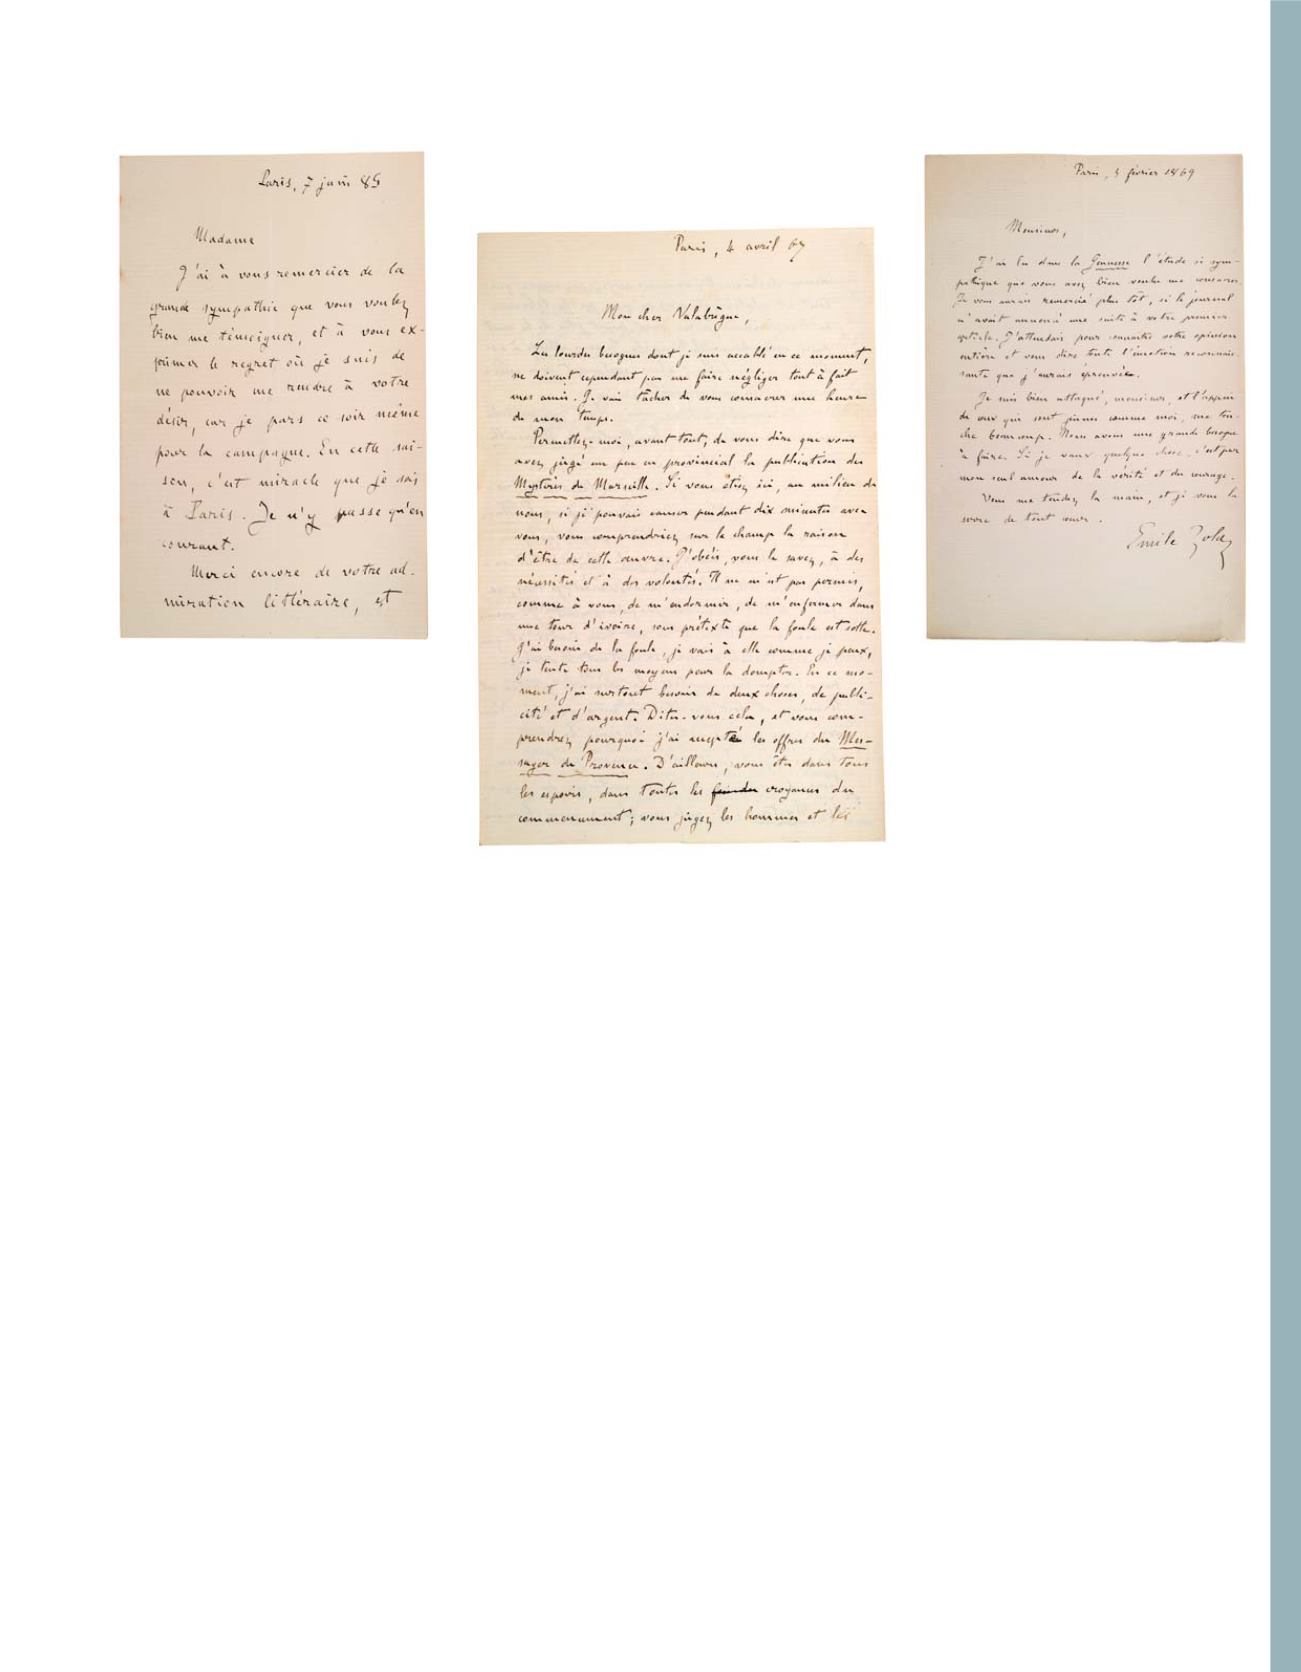 Paris, 7 juin 85
Madame
J'ai à vous remercier de la
grande sympathie que vous voulez
bien me témoigner, et à vous ex-
primer le regret où je suis de
ne pouvoir me rendre à votre
désir, car je pars ce soir même
pour la campagne. En cette sai-
son, c'est miracle que je sois
à Paris. Je n'y passe qu'en
courant.
Merci encore de votre ad-
miration littéraire, et
Paris, 4 avril 67
Mon cher Valabrègue,
Les lourdes besognes dont je suis accablé en ce moment,
ne doivent cependant pas me faire négliger tout à fait
mes amis. Je vais tâcher de vous consacrer une heure
de mon temps.
Permettez-moi, avant tout, de vous dire que vous
avez jugé un peu en provincial la publication des
Mystères de Marseille. Si vous étiez ici, au milieu de
nous, si je pouvais causer pendant dix minutes avec
vous, vous comprendriez sur le champ la raison
d'être de cette œuvre. J'obéis, vous le savez, à des
nécessités et à des volontés. Il ne m'est pas permis,
comme à vous, de m'endormir, de m'enfermer dans
une tour d'ivoire, sous prétexte que la foule est sotte.
J'ai besoin de la foule, je vais à elle comme je peux,
je tente tous les moyens pour la dompter. En ce mo-
ment, j'ai surtout besoin de deux choses, de publi-
cité et d'argent. Dites-vous cela, et vous com-
prendrez pourquoi j'ai accepté les offres du Mes-
sager de Provence. D'ailleurs, vous êtes dans tous
les espoirs, dans toutes les croyances du
commencement ; vous jugez les hommes et les
Paris, 5 février 1869
Monsieur,
J'ai lu dans la Jeunesse l'étude si sym-
pathique que vous avez bien voulu me consacrer.
Je vous aurais remercié plus tôt, si le journal
n'avait annoncé une suite à votre premier
article. J'attendais pour connaître votre opinion
entière et vous dire toute l'émotion reconnais-
sante que j'aurais éprouvée.
Je suis bien attaqué, monsieur, et l'appui
de ceux qui sont jeunes comme moi, me tou-
che beaucoup. Nous avons une grande besogne
à faire. Si je vaux quelque chose, c'est par
mon seul amour de la vérité et du courage.
Vous me tendez la main, et je vous la
serre de tout cœur.
Emile Zola